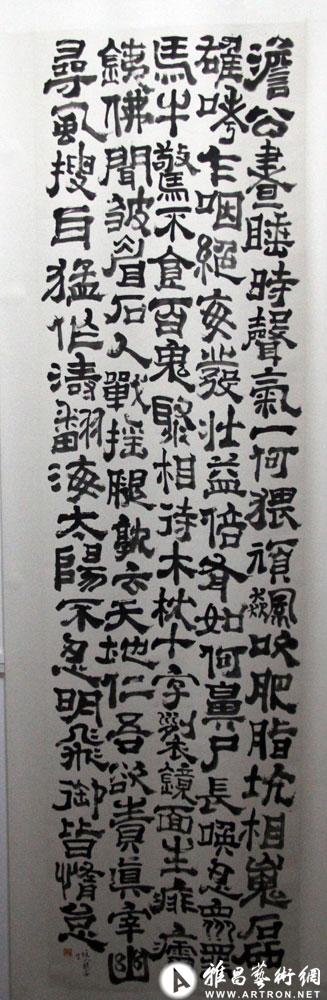 澹公晝睡時聲氣一何猥頑飆吹肥脂坑相嵬磊
雄哮乍咽絕每發壯益倍有如何鼻尸長喚忍眾罪
馬牛驚不食百鬼聚相待木枕十字裂鏡面生痱癗
鐵佛聞皺眉石人戰搖腿孰云天地仁吾欲責真宰幽
尋虱搜耳猛作濤翻海太陽不忍明飛御皆惰怠
雅昌藝術網
WWW.ARTRON.NET